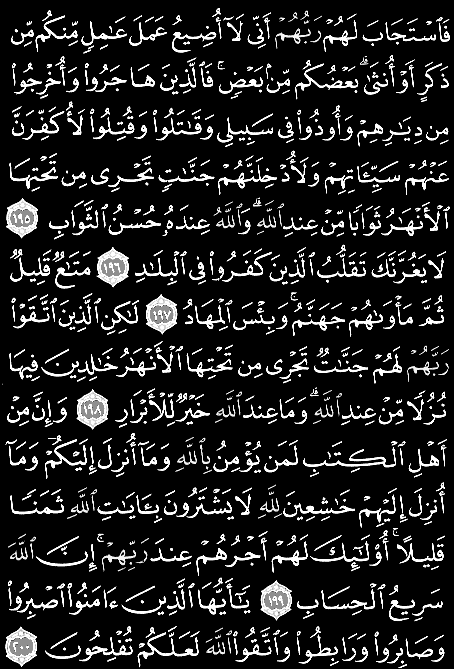 فَٱسْتَجَابَ لَهُمْ رَبُّهُمْ أَنِّى لَآ أُضِيعُ عَمَلَ عَٰمِلٍ مِّنكُم مِّن
ذَكَرٍ أَوْ أُنثَىٰ ۖ بَعْضُكُم مِّنۢ بَعْضٍ ۖ فَٱلَّذِينَ هَاجَرُوا۟ وَأُخْرِجُوا۟
مِن دِيَٰرِهِمْ وَأُوذُوا۟ فِى سَبِيلِى وَقَٰتَلُوا۟ وَقُتِلُوا۟ لَأُكَفِّرَنَّ
عَنْهُمْ سَيِّـَٔاتِهِمْ وَلَأُدْخِلَنَّهُمْ جَنَّٰتٍ تَجْرِى مِن تَحْتِهَا
ٱلْأَنْهَٰرُ ثَوَابًا مِّنْ عِندِ ٱللَّهِ ۗ وَٱللَّهُ عِندَهُۥ حُسْنُ ٱلثَّوَابِ ١٩٥
لَا يَغُرَّنَّكَ تَقَلُّبُ ٱلَّذِينَ كَفَرُوا۟ فِى ٱلْبِلَٰدِ ١٩٦ مَتَٰعٌ قَلِيلٌ
ثُمَّ مَأْوَىٰهُمْ جَهَنَّمُ ۚ وَبِئْسَ ٱلْمِهَادُ ١٩٧ لَٰكِنِ ٱلَّذِينَ ٱتَّقَوْا۟
رَبَّهُمْ لَهُمْ جَنَّٰتٌ تَجْرِى مِن تَحْتِهَا ٱلْأَنْهَٰرُ خَٰلِدِينَ فِيهَا
نُزُلًا مِّنْ عِندِ ٱللَّهِ ۗ وَمَا عِندَ ٱللَّهِ خَيْرٌ لِّلْأَبْرَارِ ١٩٨ وَإِنَّ مِنْ
أَهْلِ ٱلْكِتَٰبِ لَمَن يُؤْمِنُ بِٱللَّهِ وَمَآ أُنزِلَ إِلَيْكُمْ وَمَآ
أُنزِلَ إِلَيْهِمْ خَٰشِعِينَ لِلَّهِ لَا يَشْتَرُونَ بِـَٔايَٰتِ ٱللَّهِ ثَمَنًا
قَلِيلًا ۗ أُو۟لَٰٓئِكَ لَهُمْ أَجْرُهُمْ عِندَ رَبِّهِمْ ۗ إِنَّ ٱللَّهَ
سَرِيعُ ٱلْحِسَابِ ١٩٩ يَٰٓأَيُّهَا ٱلَّذِينَ ءَامَنُوا۟ ٱصْبِرُوا۟
وَصَابِرُوا۟ وَرَابِطُوا۟ وَٱتَّقُوا۟ ٱللَّهَ لَعَلَّكُمْ تُفْلِحُونَ ٢٠٠